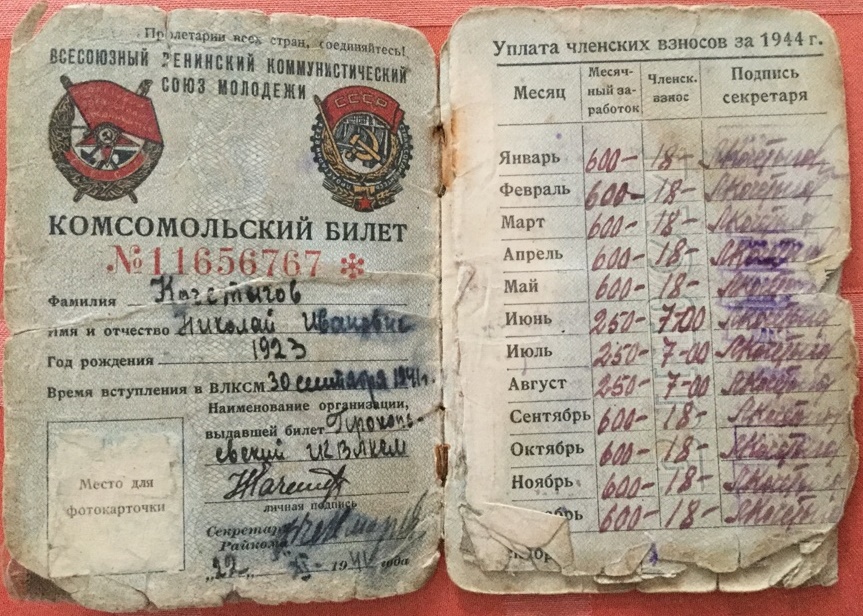 Пролетарии всех стран, соединяйтесь!
ВСЕСОЮЗНЫЙ ЛЕНИНСКИЙ КОММУНИСТИЧЕСКИЙ
СОЮЗ МОЛОДЕЖИ
СССР
КОМСОМОЛЬСКИЙ БИЛЕТ
№11656767 *
Фамилия
Имя и отчество Николай Иванович
Год рождения 1923
Время вступления в ВЛКСМ 30 сентября 1941 г.
Наименование организации,
выдавшей билет Прокопь-
евский ГК ВЛКСМ
личная подпись
Секретарь
Райкома
"29" XI 1941 года
Место для
фотокарточки
Уплата членских взносов за 1944 г.
Месяц Месяч-ный за-работок Членск. взнос Подпись секретаря
Январь 600- 18-
Февраль 600- 18-
Март 600- 18-
Апрель 600- 18-
Май 600- 18-
Июнь 250- 7-00
Июль 250- 7-00
Август 250- 7-00
Сентябрь 600- 18-
Октябрь 600- 18-
Ноябрь 600- 18-
Декабрь 600- 18-